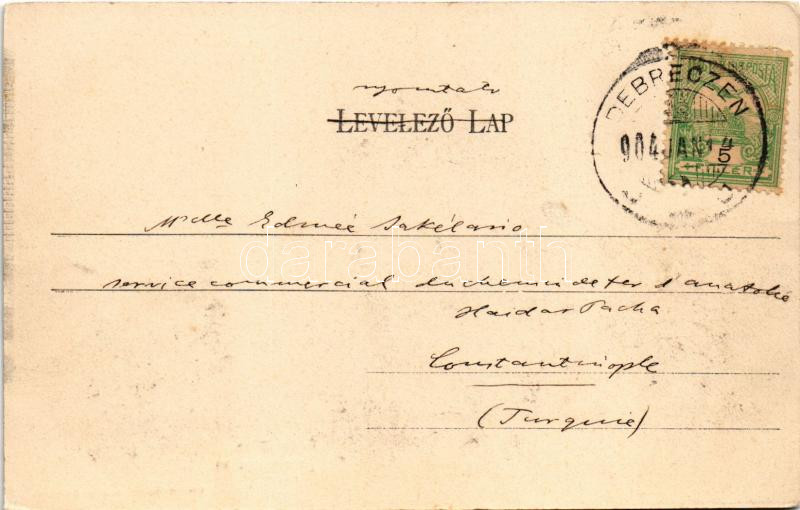 nyomtatv
LEVELEZŐ LAP
DEBRECZEN
904 JAN 14
MAGYAR KIR. POSTA
5
FILLÉR
Mlle Edmée Sakélario
service commercial du chemin de fer d'anatolie
Haidar Pacha
Constantinople
(Turquie)
darabanth